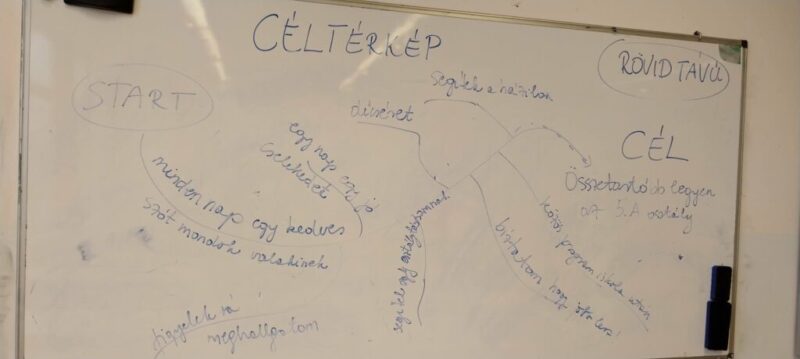 CÉLTÉRKÉP
RÖVID TÁVÚ
START
segítek a háziban
dícséret
egy nap egy jó
cselekedet
CÉL
Összetartóbb legyen
az 5.A osztály
minden nap egy kedves
szót mondok valakinek
segítek egy osztálytársamnak
közös program iskola után
bíztatom hogy
figyelek rá
meghallgatom